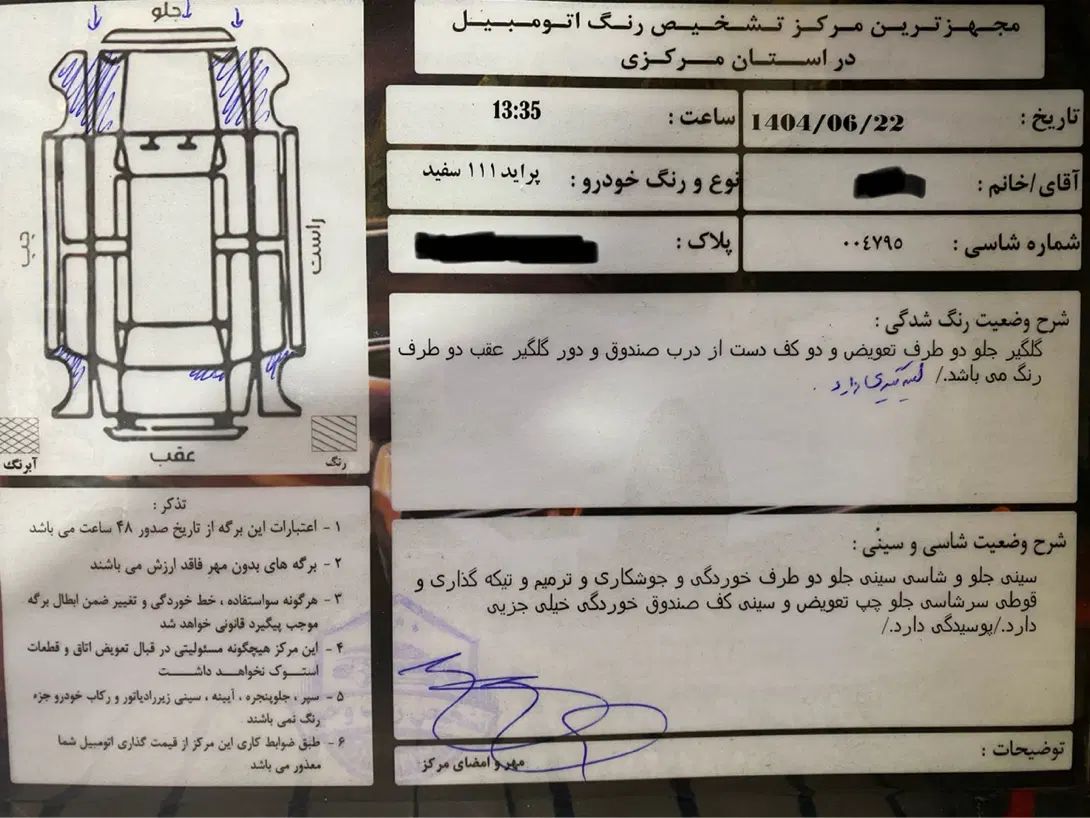 مجهزترین مرکز تشخیص رنگ اتومبیل
در استان مرکزی
تاریخ : 1404/06/22
ساعت : 13:35
آقای/خانم :
نوع و رنگ خودرو : پراید ۱۱۱ سفید
شماره شاسی : ۰۰٤٧٩٥
پلاک :
شرح وضعیت رنگ شدگی :
گلگیر جلو دو طرف تعویض و دو کف دست از درب صندوق و دور گلگیر عقب دو طرف
رنگ می باشد./
شرح وضعیت شاسی و سینی :
سینی جلو و شاسی سینی جلو دو طرف خوردگی و جوشکاری و ترمیم و تیکه گذاری و
قوطی سرشاسی جلو چپ تعویض و سینی کف صندوق خوردگی خیلی جزیی
دارد./پوسیدگی دارد./
توضیحات :
مهر و امضای مرکز
جلو
چپ
راست
عقب
آبرنگ
رنگ
تذکر :
۱ - اعتبارات این برگه از تاریخ صدور ۴۸ ساعت می باشد
۲ - برگه های بدون مهر فاقد ارزش می باشند
۳ - هرگونه سواستفاده ، خط خوردگی و تغییر ضمن ابطال برگه
موجب پیگیرد قانونی خواهد شد
۴ - این مرکز هیچگونه مسئولیتی در قبال تعویض اتاق و قطعات
استوک نخواهد داشت
۵ - سپر ، جلوپنجره ، آیینه ، سینی زیررادیاتور و رکاب خودرو جزء
رنگ نمی باشند
۶ - طبق ضوابط کاری این مرکز از قیمت گذاری اتومبیل شما
معذور می باشد